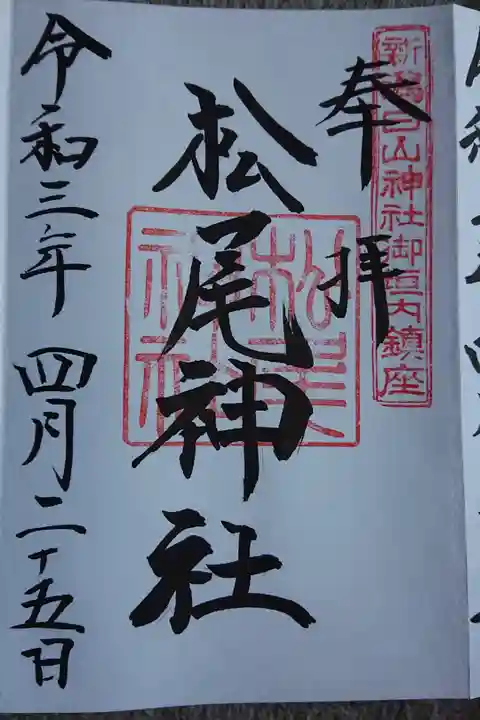 新潟白山神社御垣内鎮座
奉拝
松尾神社
松尾神社
令和三年四月二十五日